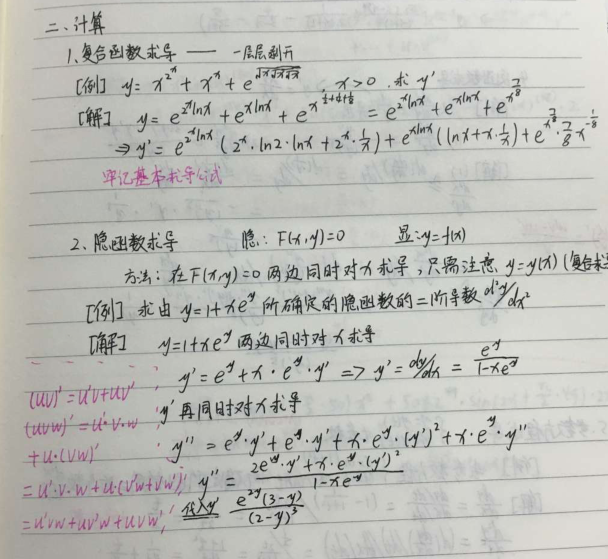 二、计算
1、复合函数求导 —— 一层层剥开
[例] y = x^{2^x} + x^x + e^{√(x√(x√x))}, x>0. 求 y'
[解] y = e^{2^x lnx} + e^{xlnx} + e^{x^{1/2+1/4+1/8}} = e^{2^x lnx} + e^{xlnx} + e^{x^{7/8}}
⇒ y' = e^{2^x lnx} (2^x · ln2 · lnx + 2^x · 1/x) + e^{xlnx} (lnx + x · 1/x) + e^{x^{7/8}} · 7/8 x^{-1/8}
牢记基本求导公式
2、隐函数求导 隐: F(x,y)=0 显: y=f(x)
方法: 在 F(x,y)=0 两边同时对 x 求导, 只需注意 y=y(x) (复合求
[例] 求由 y=1+xe^y 所确定的隐函数的二阶导数 d²y/dx²
[解] y=1+xe^y 两边同时对 x 求导
y' = e^y + x · e^y · y' => y' = dy/dx = e^y/(1-xe^y)
y' 再同时对 x 求导
y'' = e^y · y' + e^y · y' + x · e^y · (y')² + x · e^y · y''
y'' = (2e^y · y' + x · e^y · (y')²)/(1-xe^y)
代入y' e^{2y}(3-y)/(2-y)³
(uv)' = u'v+uv'
(uvw)' = u'·v·w
+u·(vw)'
= u'·v·w + u·(v'w+vw')
= u'vw + uv'w + uvw'